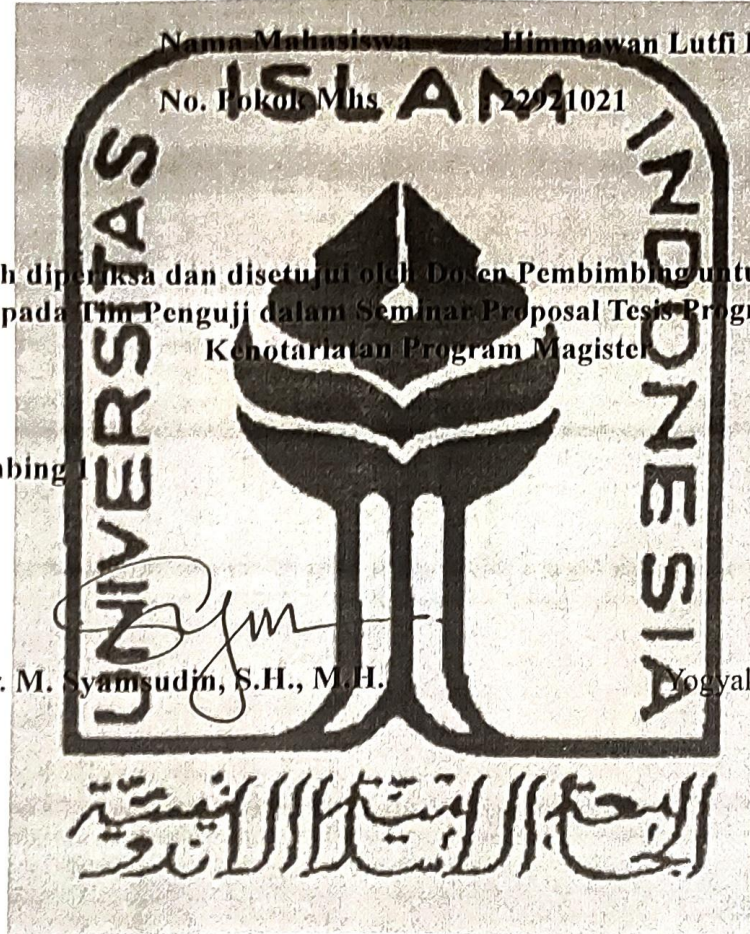 Nama Mahasiswa : Himmawan Lutfi
No. Pokok Mhs : 22921021
UNIVERSITAS
ISLAM
INDONESIA
h diperiksa dan disetujui oleh Dosen Pembimbing untu
pada Tim Penguji dalam Seminar Proposal Tesis Progr
Kenotariatan Program Magister
bing 1
. M. Syamsudin, S.H., M.H.
Yogyak